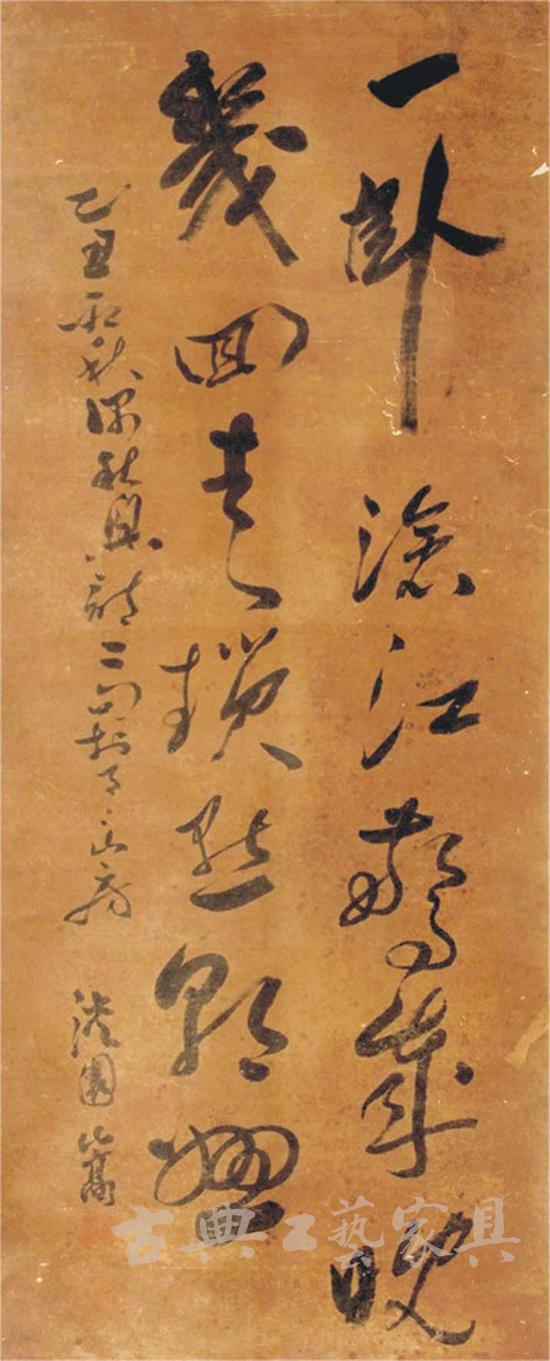 一卧滄江驚歲晚
幾回青瑣點朝班
乙丑初秋深秋興詩二句於了了山房 淡園篙
古典工藝家具